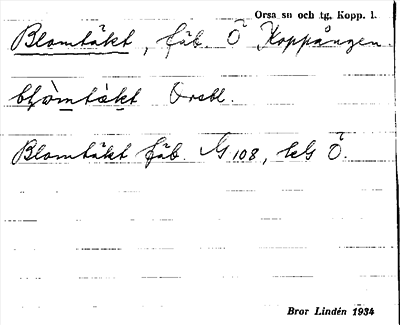 Orsa sn och tg, Kopp. l.
Blomtäkt, fäb. Ö Koppången.
Orsbl.
Blomtäkt fäb. G 108, kG Ö.
Bror Lindén 1934